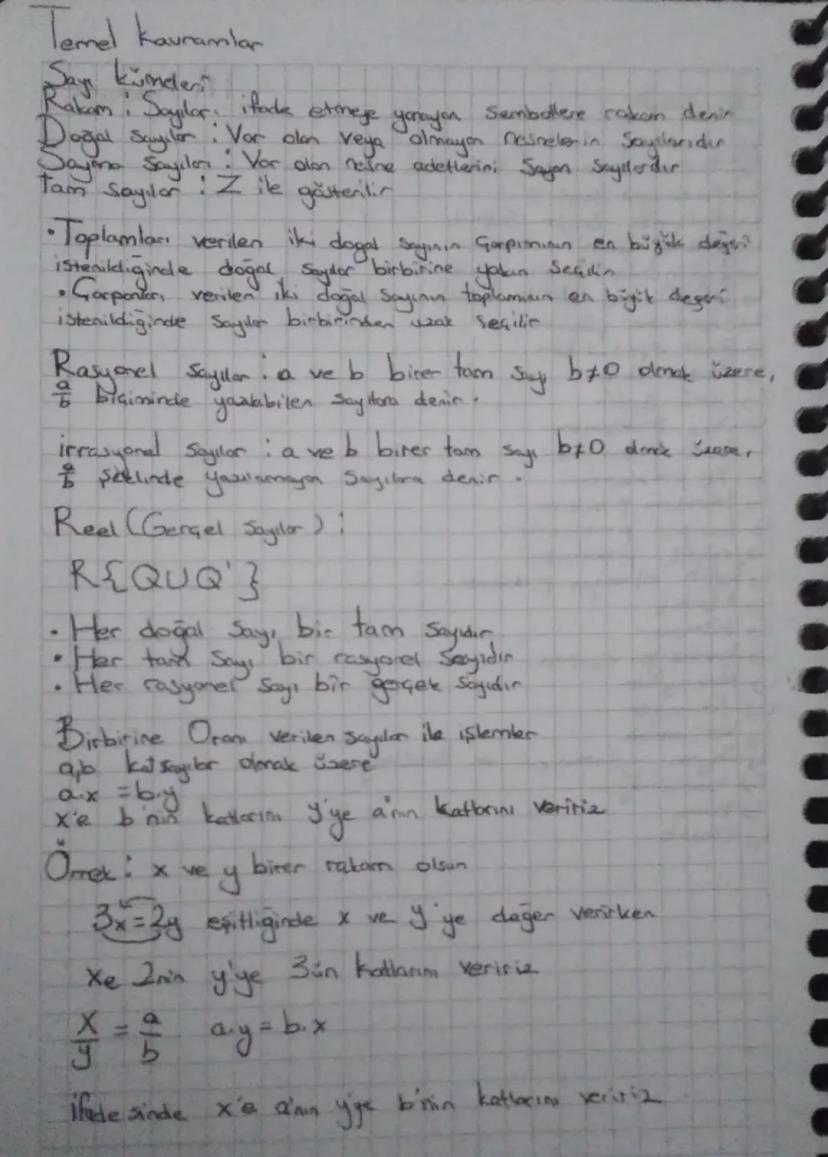 Temel Kavramlar
Sayı kümeleri
Rakam : Sayıları ifade etmeye yarayan sembollere rakam denir
Doğal sayılar : Var olan veya olmayan nesnelerin sayılarıdır
Sayma Sayıları : Var olan nesne adetlerini sayan sayılardır
Tam sayılar : Z ile gösterilir
• Toplamları verilen iki doğal sayının Çarpımının en büyük değeri
istenildiğinde doğal sayılar birbirine yakın seçilir
• Çarpanları verilen iki doğal sayının toplamının en büyük değeri
istenildiğinde sayılar birbirinden uzak seçilir
Rasyonel sayılar : a ve b birer tam sayı b≠0 olmak üzere,
a/b biçiminde yazılabilen sayılara denir.
irrasyonel sayılar : a ve b birer tam sayı b≠0 olmak üzere,
a/b şeklinde yazılamayan sayılara denir.
Reel (Gerçel sayılar) :
R{QUQ'}
• Her doğal sayı bir tam sayıdır
• Her tam sayı bir rasyonel sayıdır
• Her rasyonel sayı bir gerçek sayıdır
Birbirine Oranı verilen sayılar ile işlemler
a,b katsayılar olmak üzere
a.x = b.y
x'e b'nin katlarını y'ye a'nın katlarını veririz
Örnek : x ve y birer rakam olsun
3x = 2y eşitliğinde x ve y'ye değer verirken
xe 2nin y'ye 3ün katlarını veririz
x/y = a/b a.y = b.x
ifadesinde x'e a'nın y'ye b'nin katlarını veririz